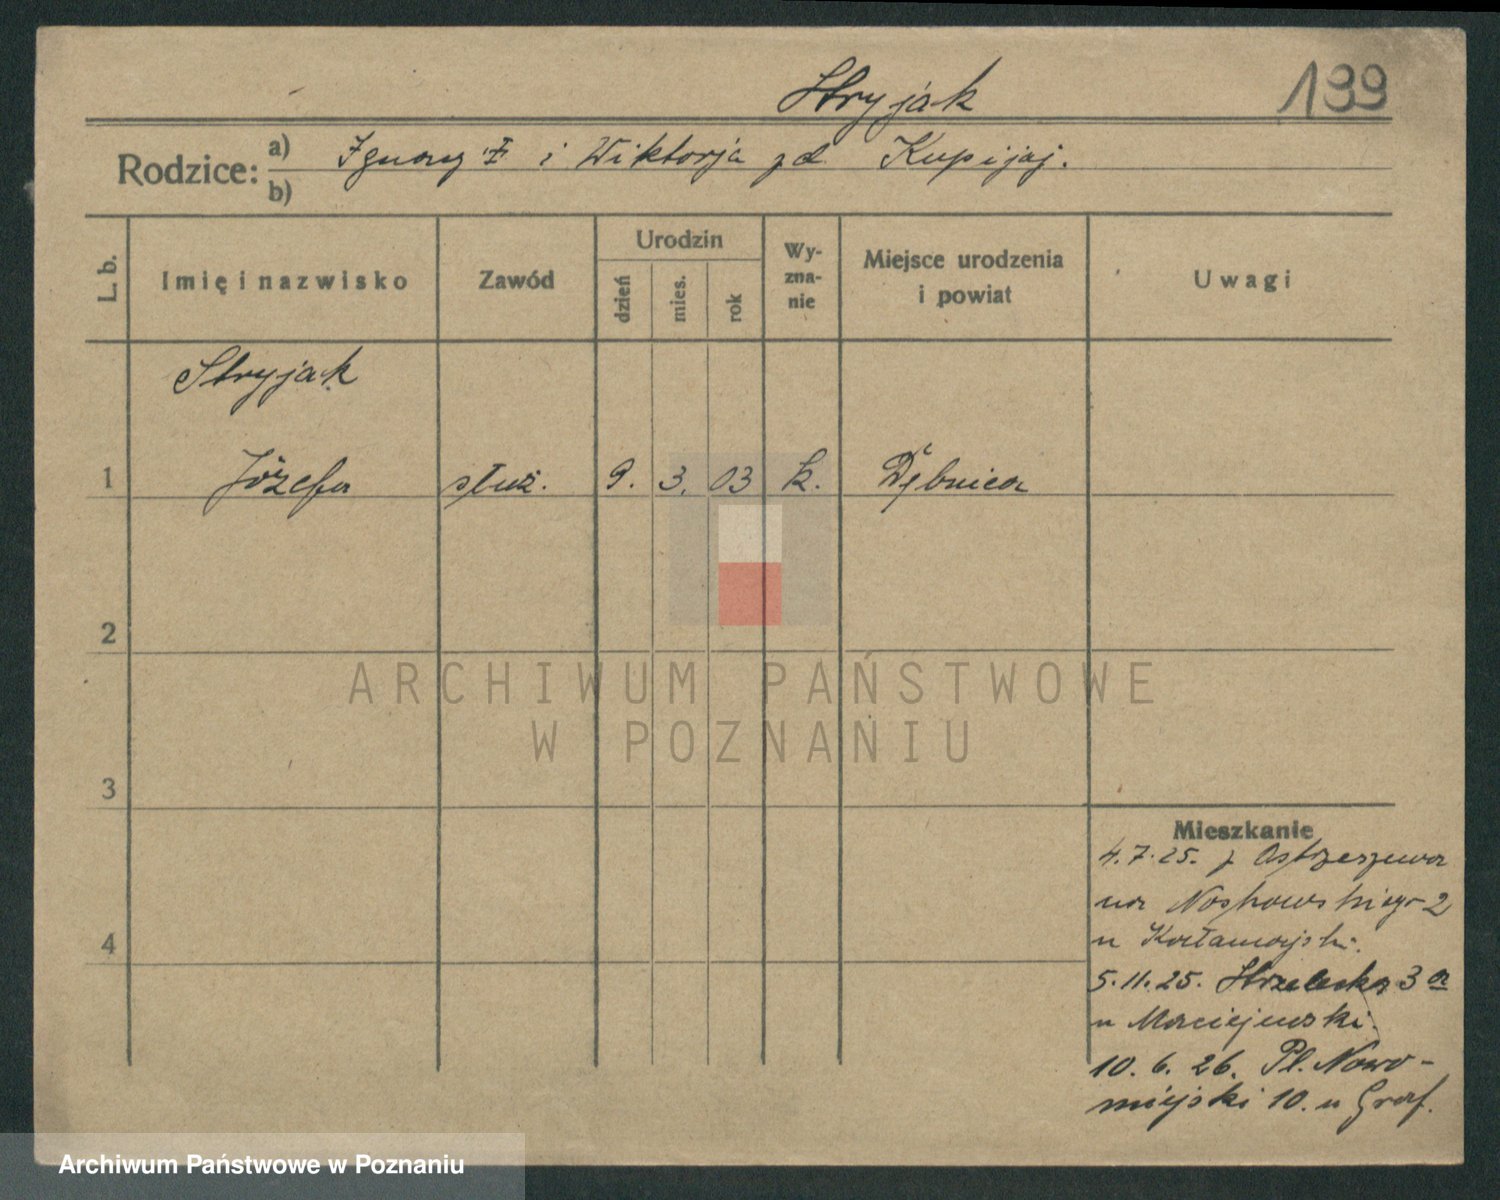 Stryjak
199
Rodzice: a) Ignacy i Wiktorja zd Kupijaj.
b)
L. b.
Imię i nazwisko
Zawód
Urodzin
dzień
mies.
rok
Wy-
zna-
nie
Miejsce urodzenia
i powiat
Uwagi
Stryjak
1 Józefa służ. 9. 3. 03 k. Dębnica
2
3
4
Mieszkanie
4.7.25. z Ostrzeszowa
na Noskowskiego 2
u
5.11.25. Strzelecka 3 a
u Maciejewski.
10. 6. 26. Pl. Nowo-
miejski 10. u Graf.
ARCHIWUM PAŃSTWOWE
W POZNANIU
Archiwum Państwowe w Poznaniu